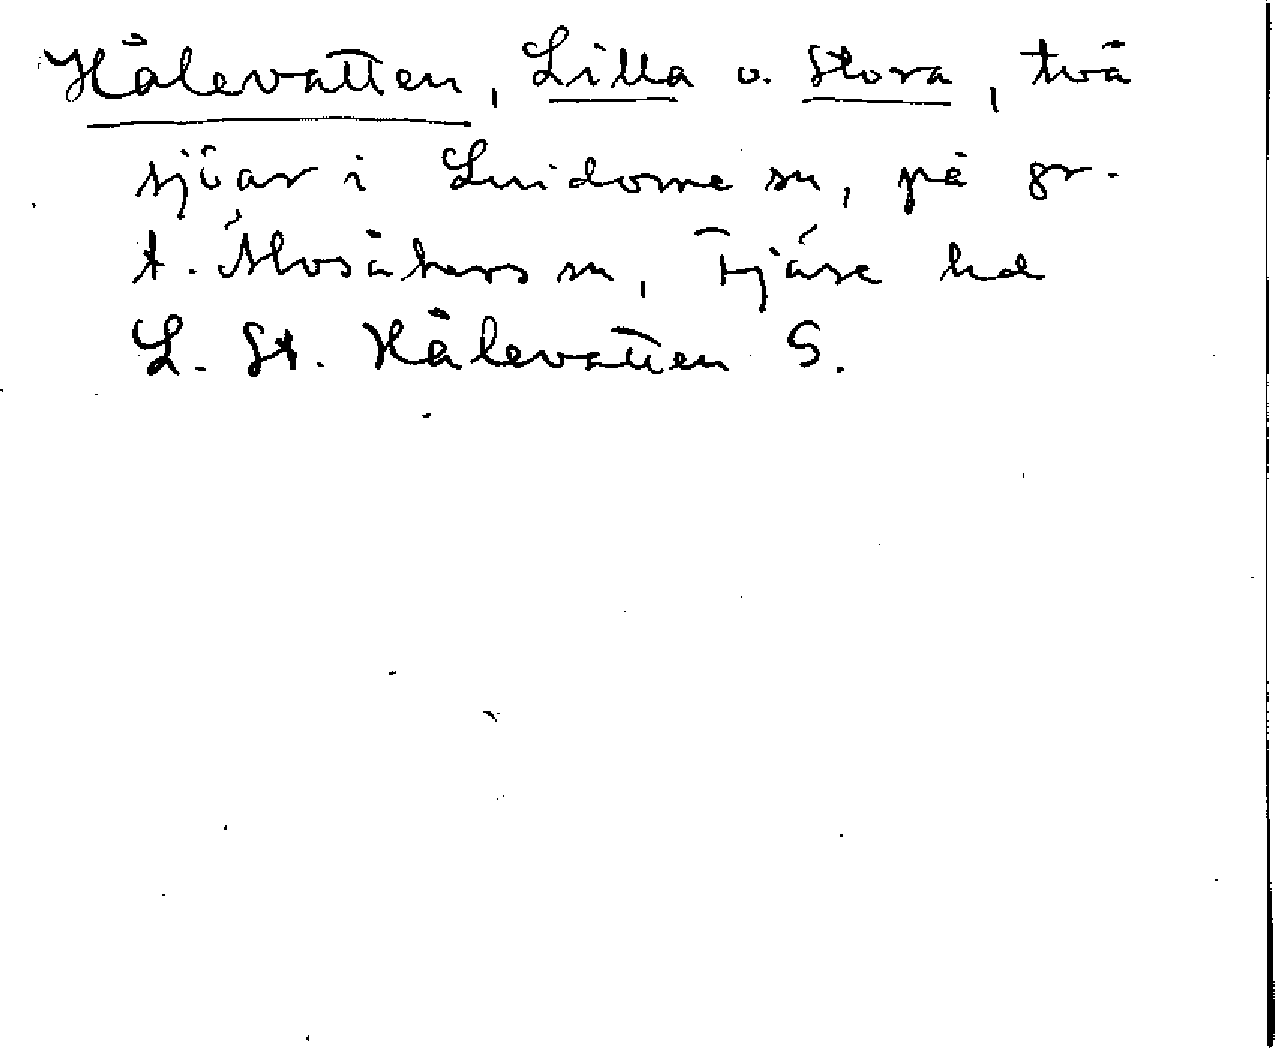 Hålevatten, Lilla o. Stora, två
sjöar i Lindome sn, på gr.
t. Älvsåkers sn, Fjäre hd
L. St. Hålevatten S.